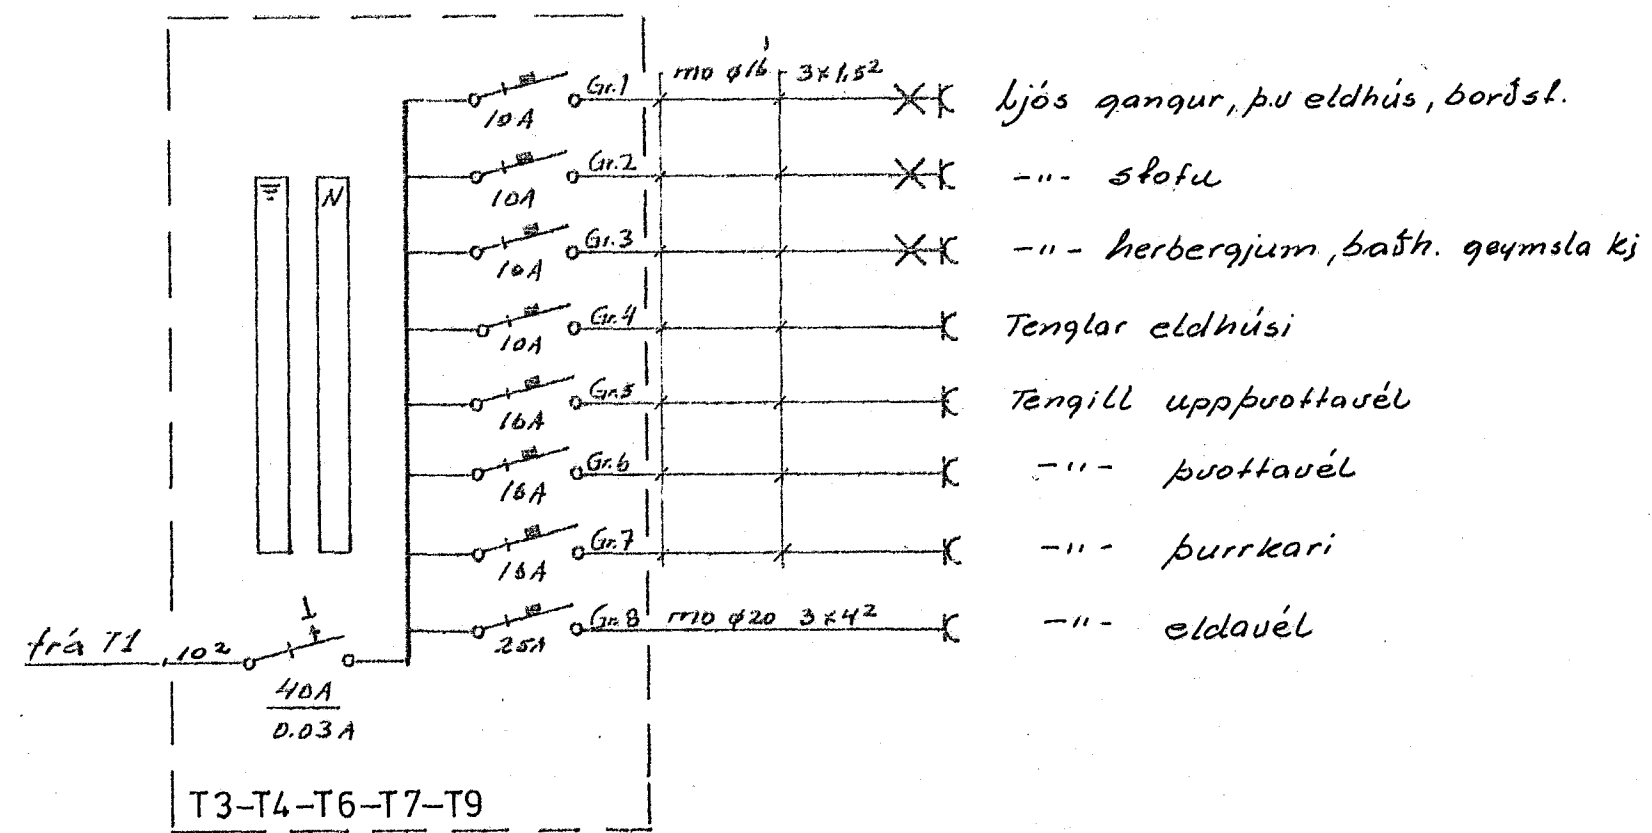 Gr.1 mo ø16 3x1,5² Ljós gangur, þ.v eldhús, borðst.
10A
Gr.2 -"- stofu
10A
N
Gr.3 -"- herbergjum, baðh. geymsla kj
10A
Gr.4 Tenglar eldhúsi
10A
Gr.5 Tengill uppþvottavél
16A
Gr.6 -"- þvottavél
16A
Gr.7 -"- þurrkari
16A
Gr.8 mo ø20 3x4² -"- eldavél
25A
frá T1 10²
40A
0.03A
T3-T4-T6-T7-T9